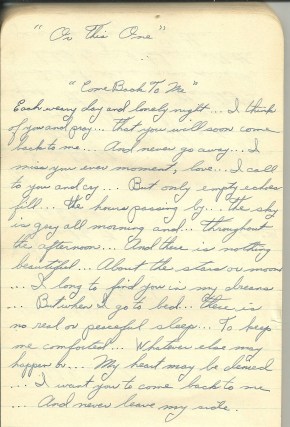 "Or This One"
"Come Back To Me"
Each weary day and lonely night... I think
of you and pray... That you will soon come
back to me... And never go away... I
miss you ever moment, love... I call
to you and cry... But only empty echoes
fill... the hours passing by... the sky
is grey all morning and... throughout
the afternoon... And there is nothing
beautiful... About the stars or moon
... I long to find you in my dreams
... But when I go to bed... there is
no real or peaceful sleep... To keep
me comforted... Whatever else may
happen or.... My heart may be denied
... I want you to come back to me
... And never leave my side.